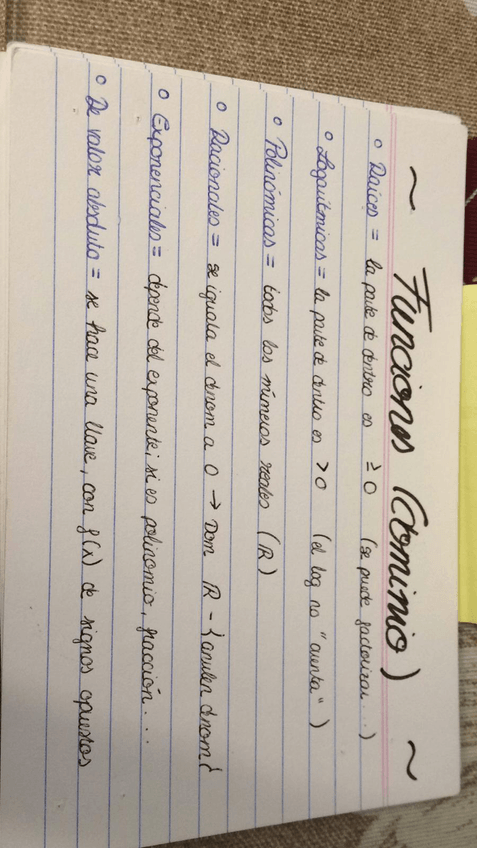 ~ Funciones (dominio) ~
° Raíces = la parte de dentro es ≥ 0 (se puede factorizar...)
° Logarítmicas = la parte de dentro es > 0 (el log no "cuenta")
° Polinómicas = todos los números reales (R)
° Racionales = se iguala el denom a 0 → Dom R - {anulen denom}
° Exponenciales = depende del exponente; si es polinomio, fracción...
° De valor absoluto = se hace una llave, con f(x) de signos opuestos